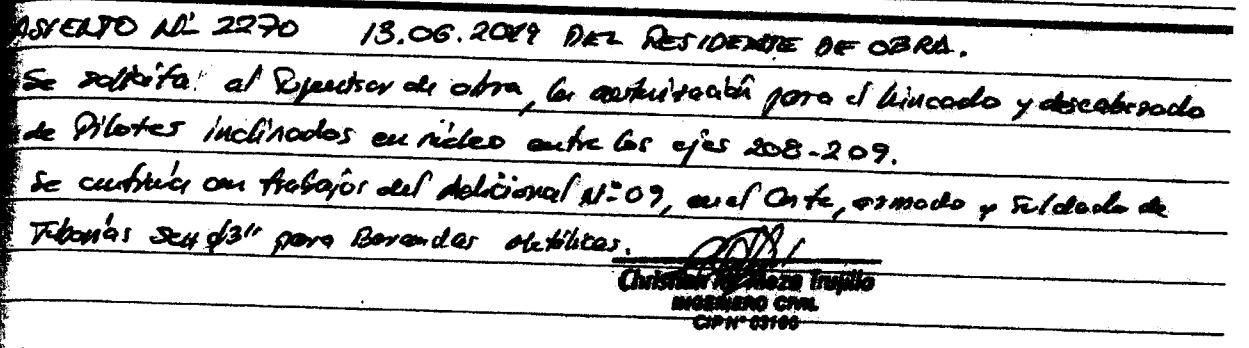 ASIENTO Nº 2270 13.06.2019 DEL RESIDENTE DE OBRA.
Se solicita al Inspector de obra, la autorización para el hincado y descabezado
de Pilotes inclinados en núcleo entre los ejes 208-209.
Se continúa con trabajos del Adicional Nº 09, en el Corte, armado y Soldado de
Tuberías SCH ϕ3" para Barandas Metálicas.
Christian Meza Trujillo
INGENIERO CIVIL
CIP Nº